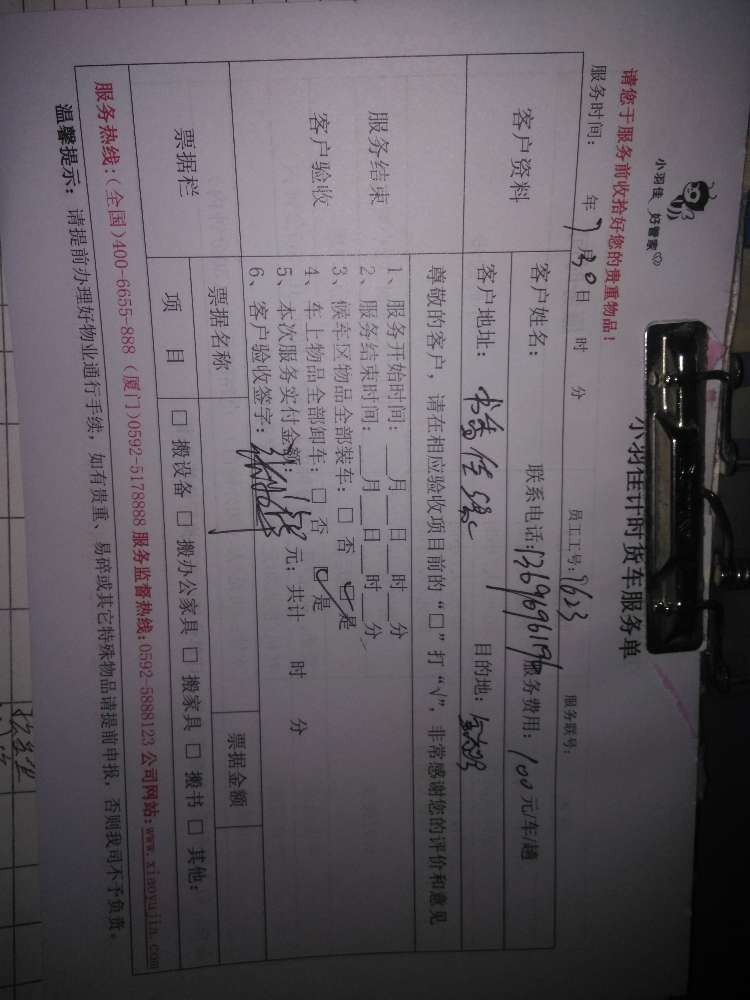 小羽佳 好管家
小羽佳计时货车服务单
请您于服务前收拾好您的贵重物品！
员工工号：7623 服务联号：
服务时间： 年 7 月 30 日 时 分
客户资料
客户姓名： 联系电话：13696961 服务费用：100 元/车/趟
客户地址：书香佳缘 目的地：
服务结束
客户验收
尊敬的客户，请在相应验收项目前的“□”打“√”，非常感谢您的评价和意见
1、服务开始时间：__月__日__时__分
2、服务结束时间：__月__日__时__分
3、候车区物品全部装车：□ 否 ☑ 是
4、车上物品全部卸车：□ 否 ☑ 是
5、本次服务实付金额： 元；共计 时 分
6、客户验收签字：
票据栏
票据名称 票据金额
项目 □ 搬设备 □ 搬办公家具 □ 搬家具 □ 搬书 □ 其他：
服务热线：(全国)400-6655-888 (厦门)0592-5178888 服务监督热线：0592-5888123 公司网站：www.xiaoyujia.com
温馨提示：请提前办理好物业通行手续，如有贵重、易碎或其它特殊物品请提前申报，否则我司不予负责。